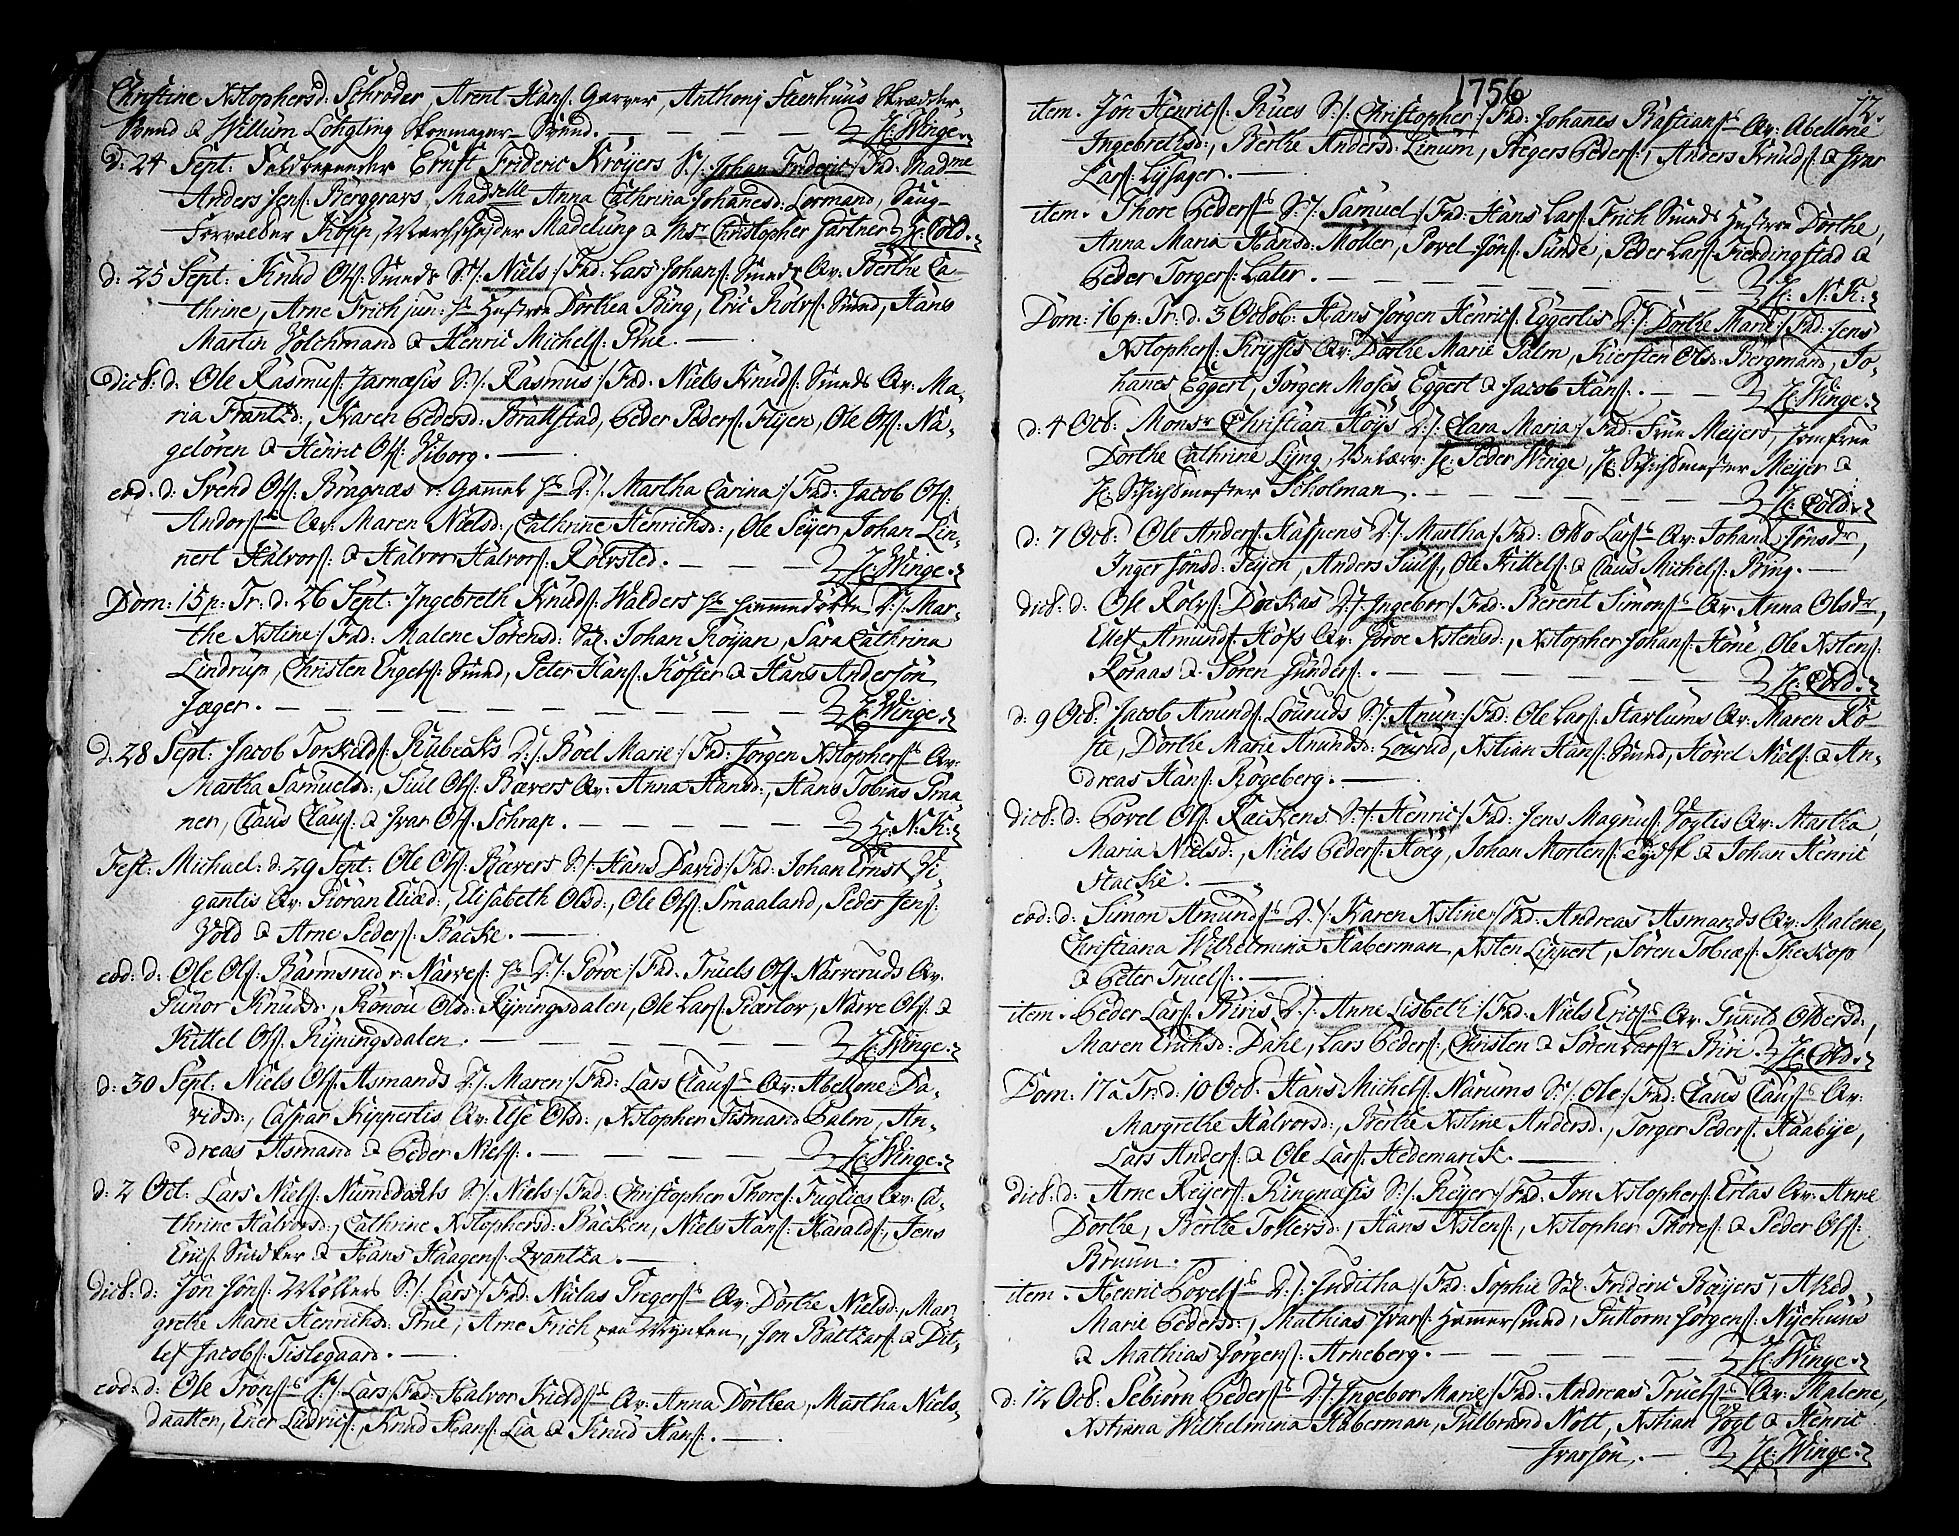 Christine Xstophersd: Schröder, Arent Hans: Garver, Anthonj Steenhuus Skrædder-
Svend & Willum Lohgting Skoemager-Svend. — H: Winge.
d: 24 Sept: Ernst Frideric Kröyers S:/: Johan Frideric:/ Fad: Madme
Anders Jens: Berggravs, Madelle Anna Cathrina Johanesd: Lormand,
Forvalter Köpp, Madelung & Msr Christopher Gärtner H: Cold.
d: 25 Sept: Knud Ols: Smeds S:/: Niels:/ Fad: Lars Johans: Smeds Qv: Berthe Ca-
thrine, Arne Frich jun: Hustroe Dorthea Bing, Eric Rolvs: Smed, Hans
Martin Volchmand & Henric Michels: Prue. —
Dic8: d: Ole Rasmus: Jarnæsis S:/: Rasmus:/ Fad: Niels Knuds: Smeds Qv: Ma-
ria Frantzd:, Karen Pedersd: Brattstad, Peder Peders: Flyen, Ole Ols: Na-
gelören & Henric Ols: Viborg. —
eod: d: Svend Ols: Bragnæs v: Gamel D:/: Martha Carina:/ Fad: Jacob Ols:
Andors Qv: Maren Nielsd:, Cathrine Henrichsd:, Ole Seyer, Johan Lin-
nert Halvors: & Halvor Halvors: Rolvsted. — H: Winge.
Dom: 15 p: Tr: d: 26 Sept: Ingebreth Knuds: Walders D:/: Mar-
the Xstine:/ Fad: Malene Sörensd: Sal: Johan Röyan, Sara Cathrina
Lindrup, Christen Engels: Smed, Peter Hans: Koster & Hans Andersön
Jæger. — H: Winge.
d: 28 Sept: Jacob Torkelds: Rubecks D:/: Boel Marie:/ Fad: Jörgen Xstophers Qv:
Martha Samuelsd:, Juul Ols: Bævers Qv: Anna Hansd:, Hans Tobias Praa-
nen, Claus Claus: & Ivar Ols: Schrap. — H: N: K:
Fest: Michael: d: 29 Sept: Ole Ols: Bævers S:/: Hans David:/ Fad: Johan Ernst Gi-
gantis Qv: Giöran Eliæd:, Elisabeth Olsd:, Ole Ols: Smaaland, Peder Jens:
Vold & Arne Peders: Backe. —
eod: d: Ole Ols: Barmsrud v: Narves: D:/: Goroe:/ Fad: Truels Ols: Narveruds Qv:
Gunor Knudsd:, Rönou Olsd: Ryningsdalen, Ole Lars: Bærlov, Narve Ols: &
Kittel Ols: Ryningsdalen. — H: Winge.
d: 30 Sept: Niels Ols: Asmands D:/: Maren:/ Fad: Lars Claus Qv: Abellone Da-
vidsd:, Caspar Kippertis Qv: Else Olsd:, Xstopher Tismand Palm, An-
dreas Asmand & Peder Niels: — H: Winge.
d: 2 Oct: Lars Niels: Numedahls S:/: Niels:/ Fad: Christopher Thores: Fuglies Qv: Ca-
thrine Halvorsd:, Cathrine Xstophersd: Backen, Niels Hans: Haralds:, Jens
Erics: Snidker & Hans Haagens: Qvantza. —
Dic8: d: Jon Jöns: Möllers S:/: Lars:/ Fad: Niclas Gregers Qv: Dorthe Nielsd:, Mar-
grethe Marie Henrichsd: Prue, Arne Frich paa Mynten, Jon Baltzars: & Dit-
lef Jacobs: Tislegaard. —
eod: d: Ole Trons S:/: Lars:/ Fad: Halvor Kields Qv: Anna Dorthea, Martha Niels-
daatter, Ener Ludvics:, Knud Hans: Lia & Knud Hans:. —
1756
12.
item. Jon Henrics: Rues S:/: Christopher:/ Fad: Johanes Bastians Qv: Abelone
Ingebrethsd:, Berthe Andersd: Linum, Gregers Peders:, Anders Knuds: & Ivar
Lars: Lysager. —
item. Thore Peders S:/: Samuel:/ Fad: Hans Lars: Frich Smeds Hustroe Dorthe,
Anna Maria Hansd: Möller, Povel Jöns: Sunde, Peder Lars: Fierdingstad &
Peder Torgers: Later. — H: N: K:
Dom: 16 p: Tr: d: 3 Octob: Hans Jörgen Henrics: Eggertis D:/: Dorthe Marie:/ Fad: Jens
Xstophers: Krysis Qv: Dorthe Marie Palm, Kiersten Olsd: Bergmand, Jo-
hanes Eggert, Jörgen Moses Eggert & Jacob Hans: — H: Winge.
d: 4 Oct: Monsr Christian Höys D:/: Clara Maria:/ Fad: Frue Meijers, Jomfrue
Dorthe Cathrine Lyng, H: Peder Winge, H: Schichtmester Meijer &
H: Schichtmester Scholman. — H: Cold.
d: 7 Oct: Ole Anders: Haspens D:/: Martha:/ Fad: Otto Lars Qv: Johana Jönsdr,
Inger Jönsd: Teijen, Anders Juuls:, Ole Kittels: & Claus Michels: Bring. —
dic8: d: Ole Rolvs: Dockas D:/: Ingebor:/ Fad: Berent Simons Qv: Anna Olsdr,
Ellef Amunds: Hoss Qv: Goroe Xstensd:, Xstopher Johans: Höne, Ole Xstens:
Roraas & Sören Gunders:. — H: Cold.
d: 9 Oct: Jacob Amunds: Louruds S:/: Anun:/ Fad: Ole Lars: Starlums Qv: Maren Ro-
ste, Dorthe Marie Anundsd: Lourud, Xstian Hans: Smed, Hovel Niels: & An-
dreas Hans: Rögeberg. —
dic8: d: Povel Ols: Rackens S:/: Henric:/ Fad: Jens Magnus: Vogtis Qv: Martha
Maria Nielsd:, Niels Peders: Hoeg, Johan Mortens: Tydsk & Johan Henric
Stacke. —
eod: d: Simon Amunds D:/: Karen Xstine:/ Fad: Andreas Asmands Qv: Malene,
Christiana Wilhelmina Haberman, Xsten Lippert, Sören Tobias: Theskop
& Peter Truels: —
item. Peder Lars: Biris D:/: Anne Lisbeth:/ Fad: Niels Erics Qv: Gunild Olversd:,
Maren Erichsd: Dahl, Lars Peders:, Christen & Sören Larsr Biri. H: Cold.
Dom: 17 a Tr: d: 10 Oct: Hans Michels: Narums S:/: Ole:/ Fad: Claus Claus Qv:
Margrethe Halvorsd:, Berthe Xstine Andersd:, Torger Peders: Haabije,
Lars Anders: & Ole Lars: Hedemarck. —
dic8: d: Arne Reyers: Ringnæsis S:/: Reyer:/ Fad: Jon Xstophers: Ertas Qv: Anne
Dorthe, Berthe Tollersd:, Hans Xstens:, Xstopher Thores: & Peder Ols:
Bruun. —
item. Henric Povels D:/: Juditha:/ Fad: Sophie Sal: Frideric Bayers,
Marie Pedersd:, Mathias Ivars: Hamersmed, Guttorm Jörgens: Nyehuus
& Mathias Jörgens: Arneberg. — H: Winge.
d: 12 Oct: Sebiörn Peders D:/: Ingebor Marie:/ Fad: Andreas Truels Qv: Malene,
Xstiana Wilhelmina Haberman, Gulbrand Nott, Xstian Vogt & Henric
Ivarsön. — H: Winge.